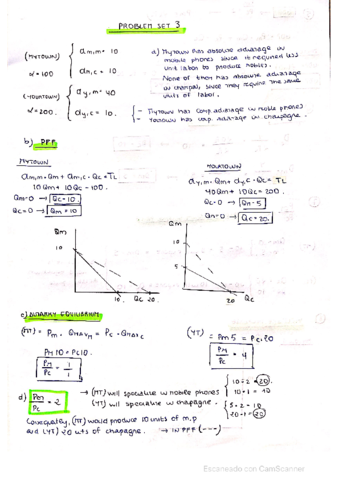 PROBLEM SET 3
(MYTOWN)
α=100
am,m = 10
am,c = 10.
(YOURTOWN)
α=200.
ay,m = 40
ay,c = 10.
a) Mytown has absolute advantage in
mobile phones since it requires less
unit labor to produce mobiles.
None of them has absolute advantage
in champag, since they require the same
units of labor.
- Mytown has comp. advantage in mobile phones
- Yourtown has comp. advantage in champagne.
b) PPF
MYTOWN
am,m·Qm + am,c·Qc = TL
10Qm + 10Qc = 100.
Qm=0 → Qc=10.
Qc=0 → Qm=10
ay,m·Qm + ay,c·Qc = TL
40Qm + 10Qc = 200.
Qc=0 → Qm=5
Qm=0 → Qc=20.
Qm
10
10.
20
Qc
Qm
10
5
20
Qc
c) AUTARKY EQUILIBRIUM
(MT) = Pm · Qmaxm = Pc · Qmaxc
Pm 10 = Pc 10.
Pm/Pc = 1/1
(YT) = Pm 5 = Pc·20
Pm/Pc = 4
d) Pm/Pc = 2
→ (MT) will specialise in mobile phones
(YT) will specialise in champagne.
10÷2=20.
10÷1=10
5·2=10
20÷1=20
Consequently, (MT) would produce 10 units of m.p
and (YT) 20 units of champagne. → In PPF (---)
Escaneado con CamScanner